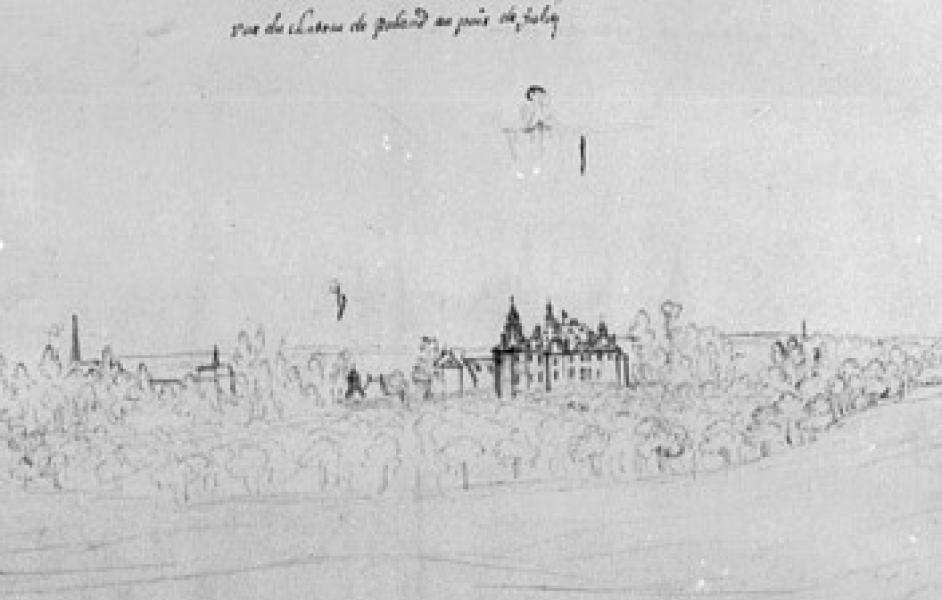 vue du chateau de paland au pais de Juley